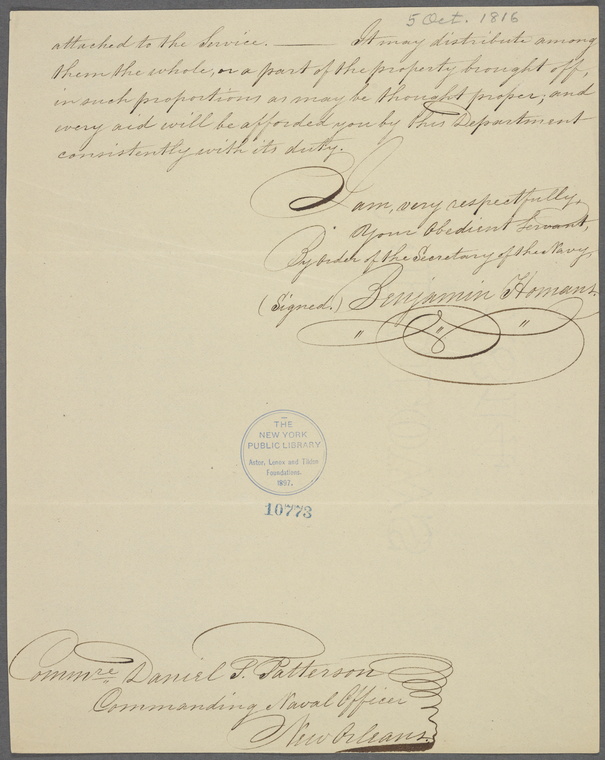 5 Oct. 1816
attached to the Service. — It may distribute among
them the whole, or a part of the property brought off,
in such proportions as may be thought proper; and
every aid will be afforded you by this Department
consistently with its duty.
I am, very respectfully,
Your Obedient Servant,
By order of the Secretary of the Navy,
(Signed.) Benjamin Homans.
" " "
THE
NEW YORK
PUBLIC LIBRARY
Astor, Lenox and Tilden
Foundations.
1897.
10773
Commre Daniel T. Patterson
Commanding Naval Officer
New Orleans.